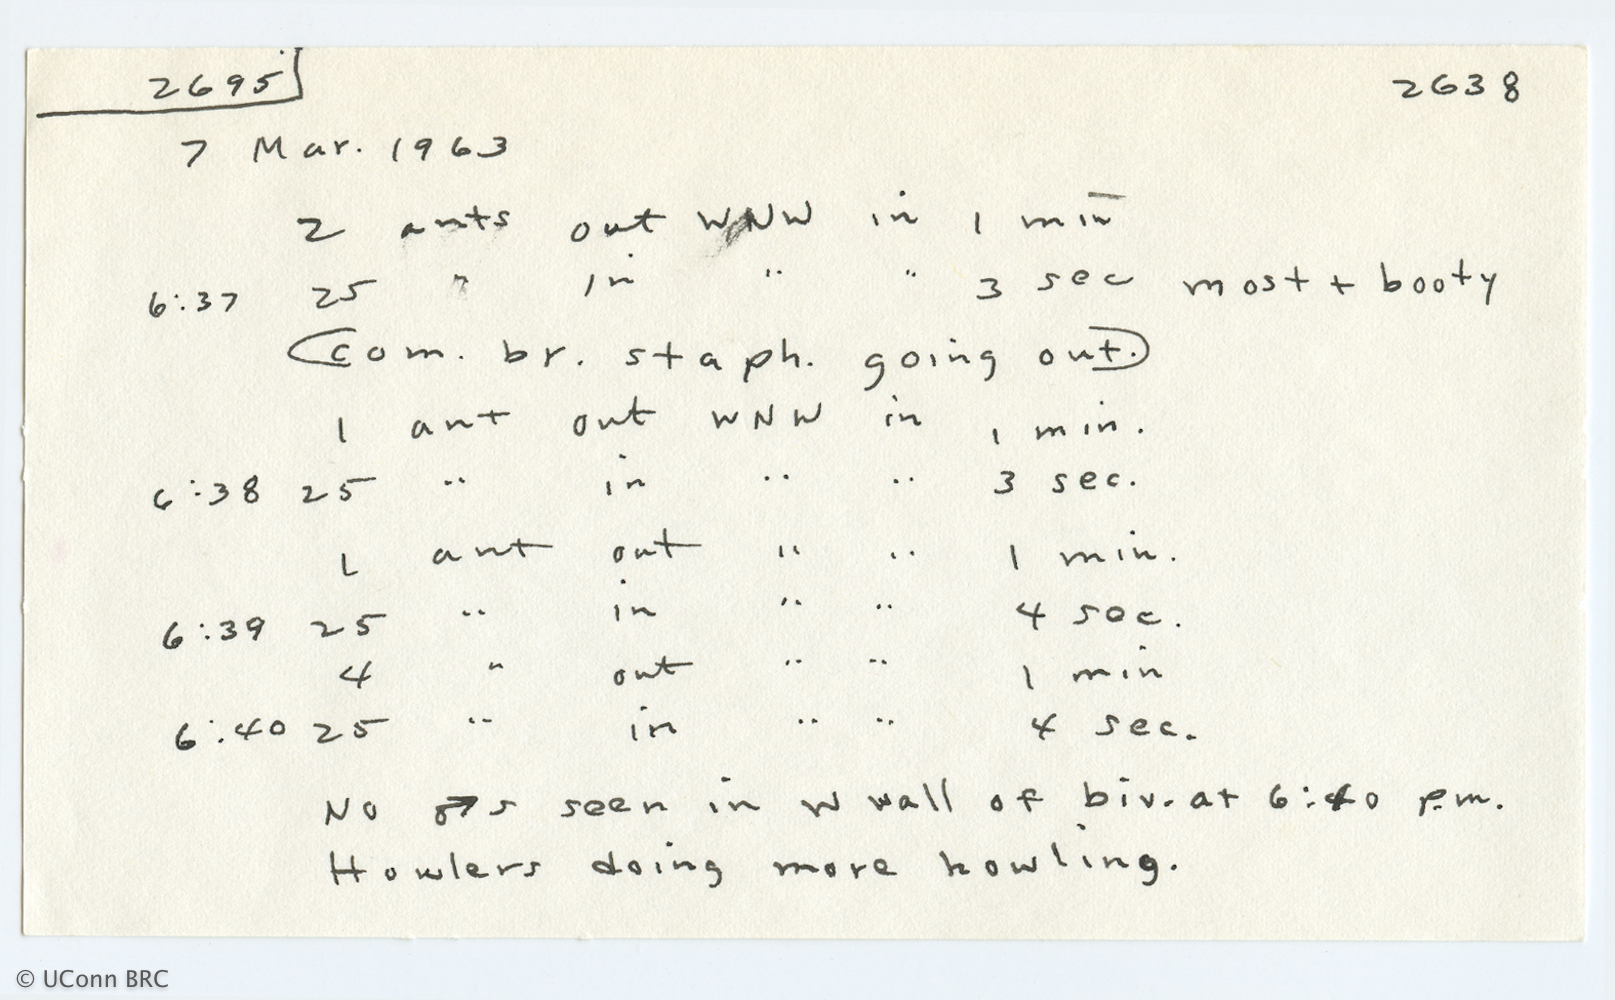 2695 2638
7 Mar. 1963
2 ants out WNW in 1 min
6:37 25 " in " " 3 sec most + booty
(com. br. staph. going out.)
1 ant out WNW in 1 min.
6:38 25 " in " " 3 sec.
1 ant out " " 1 min.
6:39 25 " in " " 4 sec.
4 " out " " 1 min
6:40 25 " in " " 4 sec.
No ♂s seen in W wall of biv. at 6:40 p.m.
Howlers doing more howling.
© UConn BRC